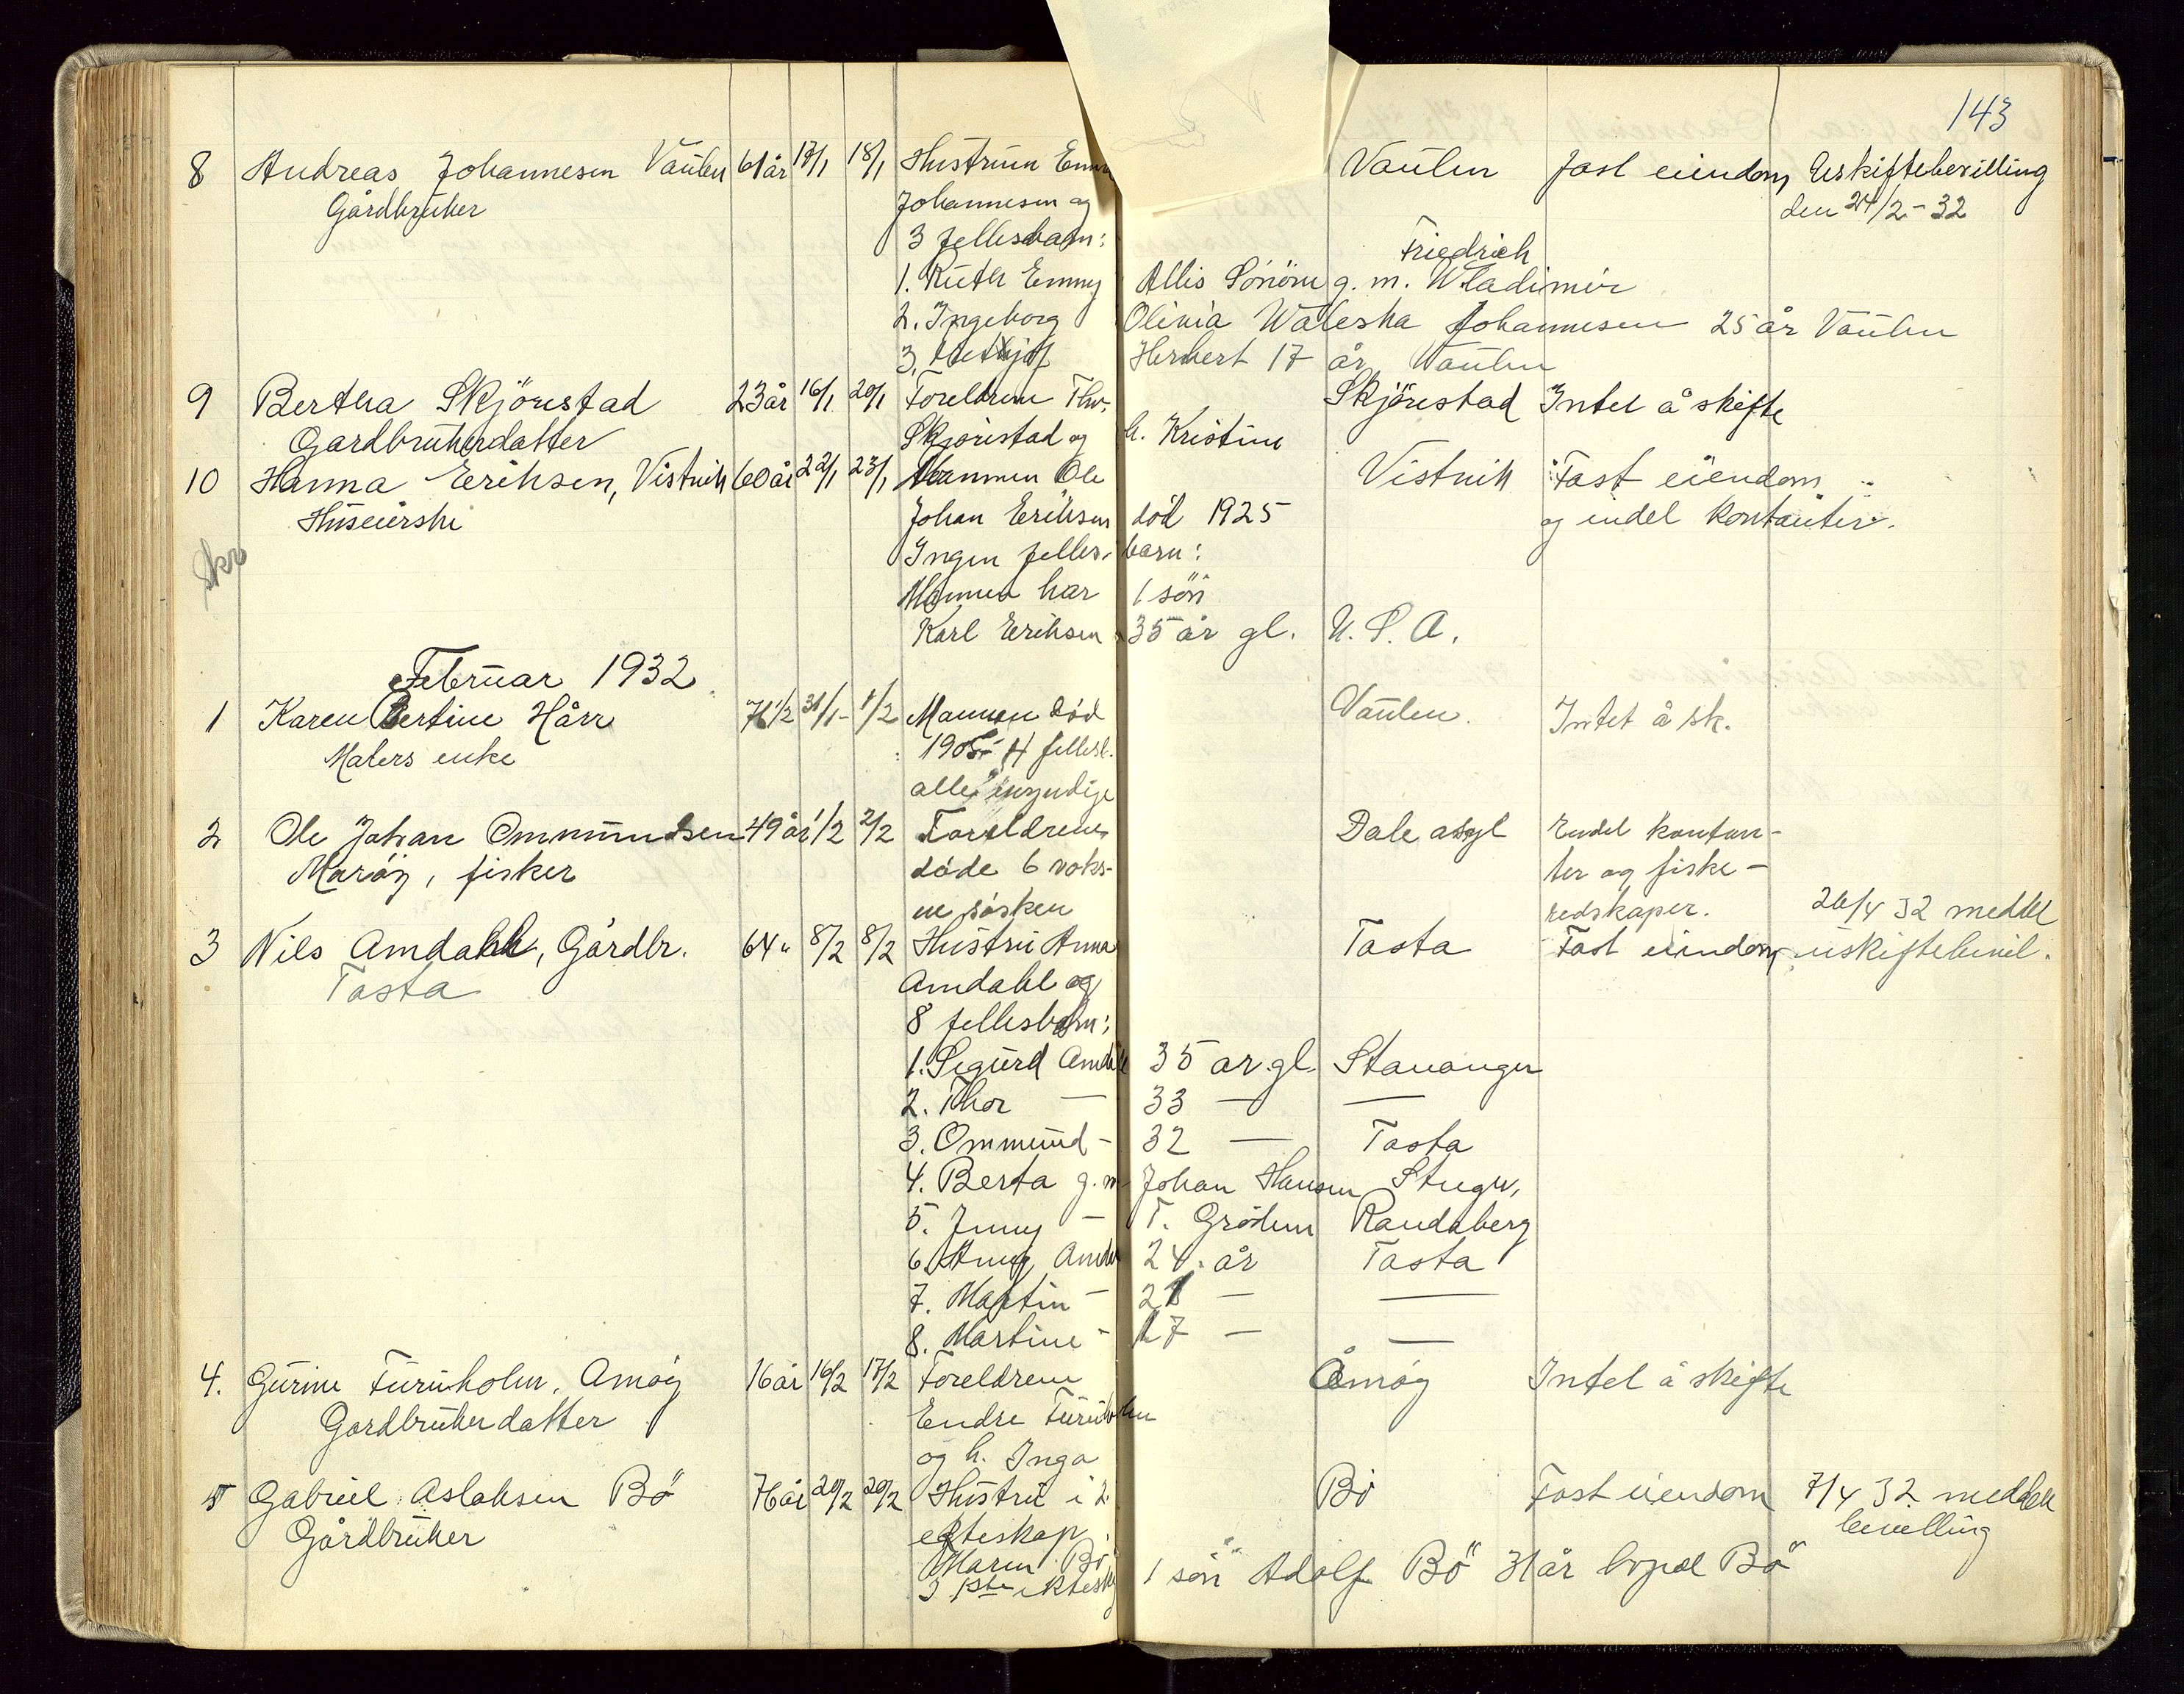 143
8 Andreas Johannesen Vaulen 61 år 17/1 18/1 Hustruen Emmy Vaulen fast eiendom Uskiftebevilling
Gårdbruker Johannesen og den 24/2-32
3 fellesbarn:
Friedrich
1. Ruth Emmy Allis g. m. Wladimir
2. Ingeborg Olinia Waleska Johannesen 25 år Vaulen
3. Herbert 17 år Vaulen
9 Bertha Skjörestad 23 år 16/1 20/1 Foreldrene Skjörestad Intet å skifte
Gardbrukerdatter Skjörestad og h. Kristine
10 Hanna Eriksen, Vistnik 60 år 22/1 23/1 Mannen Ole Vistnik Fast eiendom
Huseierske Johan Eriksen död 1925 og endel kontanter.
Ingen felles- barn:
Skr
Mannen har 1 sön
Karl Eriksen 35 år gl. U. S. A.
Februar 1932
1 Karen Bertine Hårr 71 1/2 31/1 - 1/2 Mannen död Vaulen. Intet å sk.
Malers enke 1905 4 fellesb.
alle myndige
2 Ole Johan Ommundsen 49 år 1/2 2/2 Foreldrene Dale asyl Endel kontan-
Maröy, fisker döde 6 voks- ter og fiske-
ne søsken redskaper. 26/4 32 meddel
3 Nils Amdahl, Gårdbr. 64 " 8/2 8/2 Hustru Anna Tasta Fast eiendom uskiftebevil.
Tasta Amdahl og
8 fellesbarn:
1. Sigurd Amdahl 35 år gl. Stavanger
2. Thor — 33 — —
3. Ommund - 32 — Tasta
4. Berta g. m Johan Hansen Stvgr,
5. Jenny — T. Grödem Randaberg
6. Anny 24. år Tasta
7. Martin — 21 — —
8. Martine - 17 — —
4. Gurine Furuholm, Amöy 16 år 16/2 17/2 Foreldrene Åmöy Intet å skifte
Gardbrukerdatter Endre Furuholm
og h. Inga
5 Gabriel Aslaksen Bö 76 år 20/2 20/2 Hustru i 2. Bö Fast eiendom 7/4 32 meddelt
Gårdbruker ekteskap bevilling
Maren Bö,
I 1ste ektesk 1 sön Adolf Bö 31 år bopæl Bö